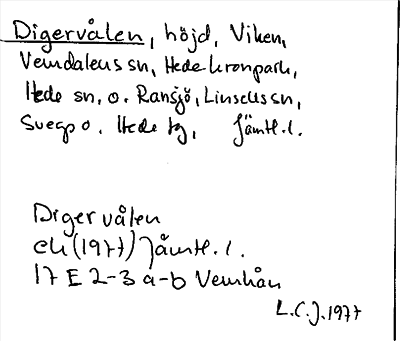 Digervålen, höjd, Viken,
Vemdalens sn, Hede kronpark,
Hede sn, o. Ransjö, Linsells sn,
Svegs o. Hede tg, Jämtl. l.
Digervålen
ek (1977) Jämtl. l.
17 E 2-3 a-b Vemhån
L.C.J. 1977